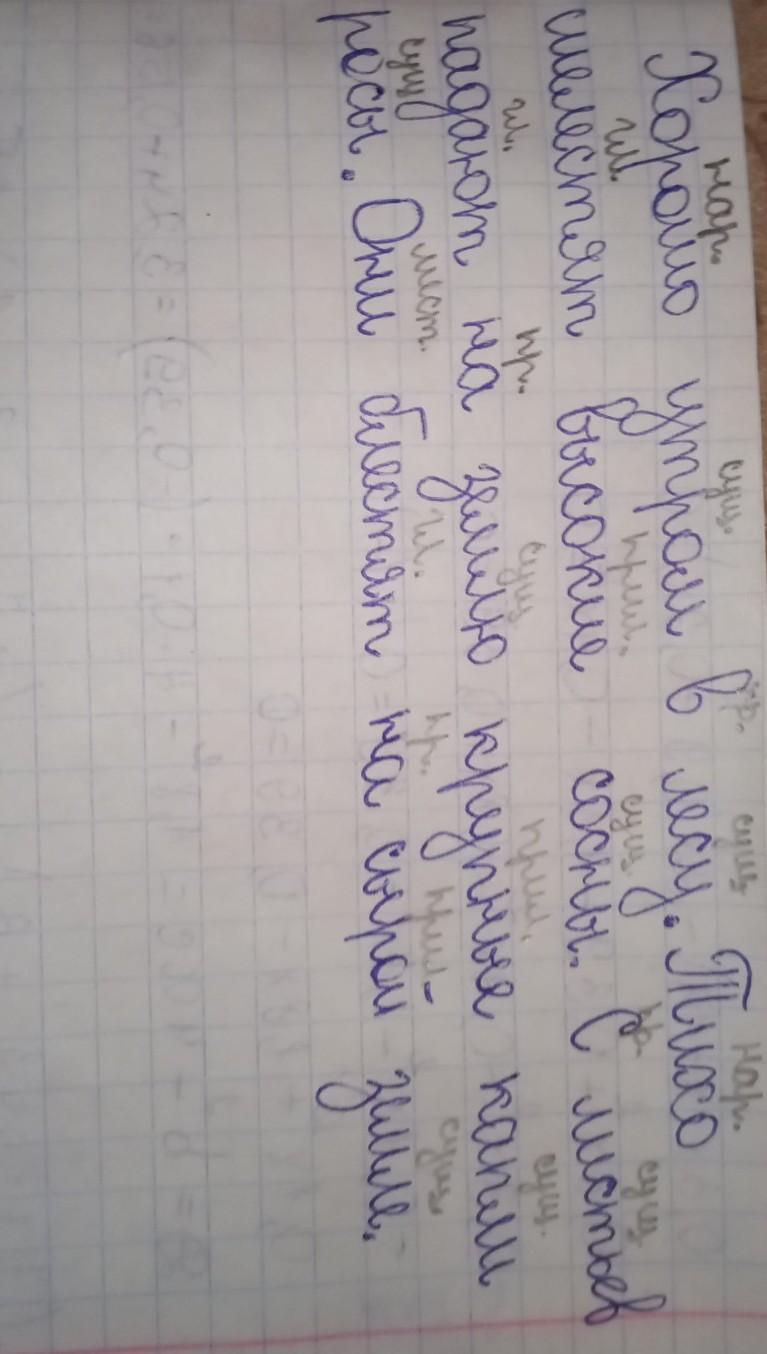 нар. сущ. пр. сущ нар.
Хорошо утром в лесу. Тихо
гл. прил. сущ. пр. сущ
шелестят высокие сосны. С листьев
гл. пр. сущ прил. сущ.
падают на землю крупные капли
сущ мест. гл. пр. прил. сущ.
росы. Они блестят на сырой земле.